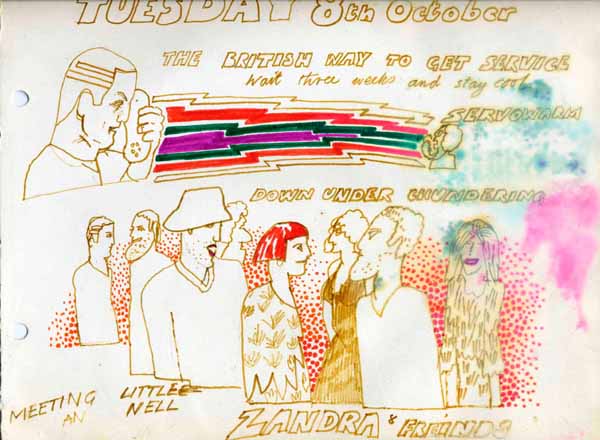 TUESDAY 8th October
THE BRITISH WAY TO GET SERVICE
Wait three weeks and stay cool
SERVOWARM
DOWN UNDER CHUNDERING
MEETING
AN
LITTLE
NELL
ZANDRA & FREINDS